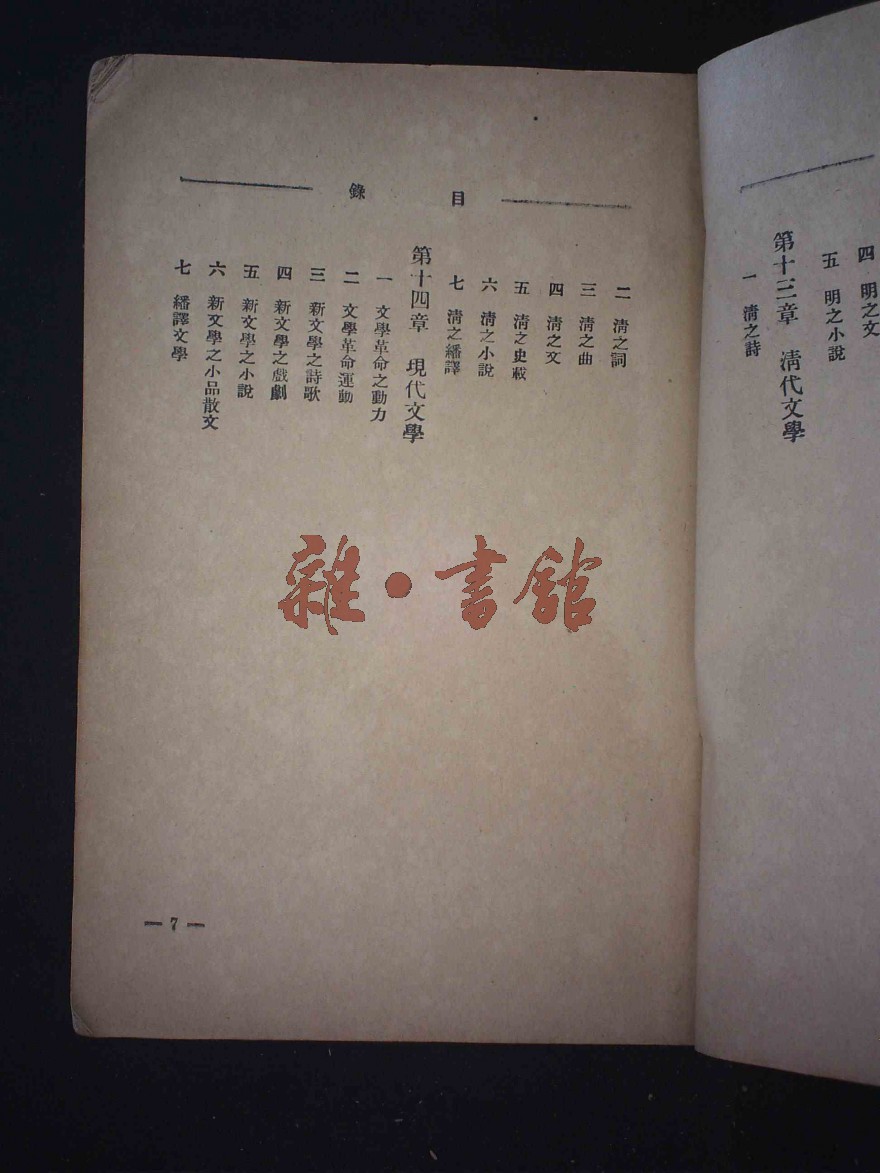 四 明之文
五 明之小說
第十三章 清代文學
一 清之詩
目錄
二 清之詞
三 清之曲
四 清之文
五 清之史載
六 清之小說
七 清之繙譯
第十四章 現代文學
一 文學革命之動力
二 文學革命運動
三 新文學之詩歌
四 新文學之戲劇
五 新文學之小說
六 新文學之小品散文
七 繙譯文學
— 7 —
雜·書館